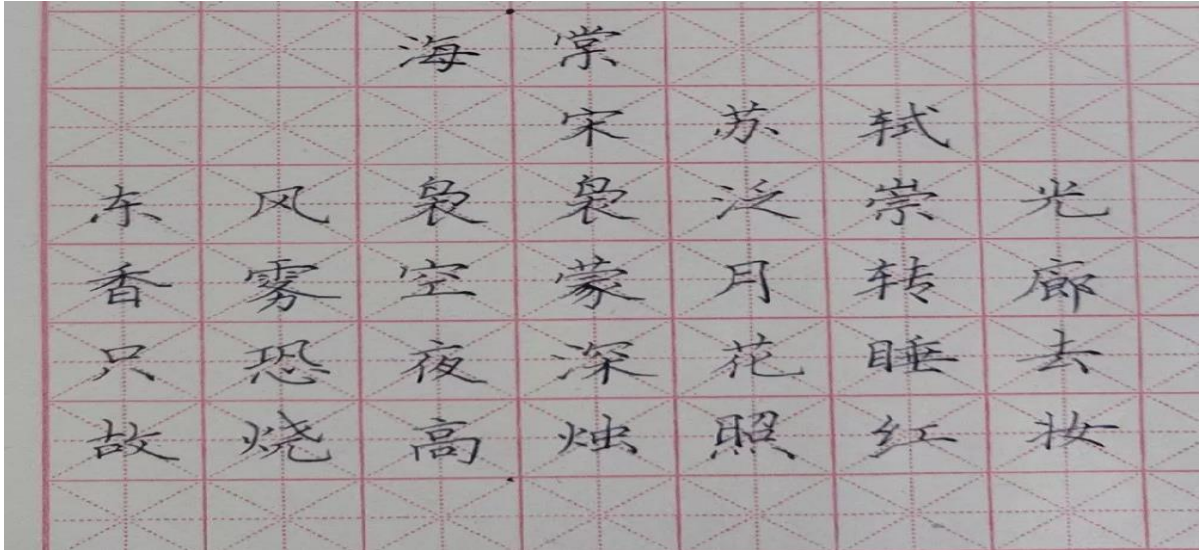 海棠
宋 苏轼
东风袅袅泛崇光
香雾空蒙月转廊
只恐夜深花睡去
故烧高烛照红妆